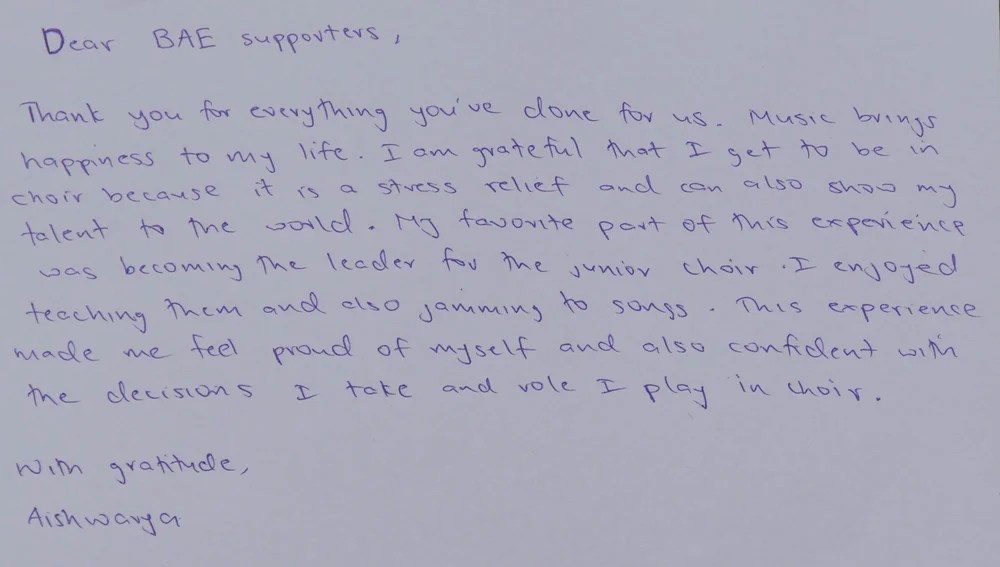 Dear BAE supporters,
Thank you for everything you've done for us. Music brings
happiness to my life. I am grateful that I get to be in
choir because it is a stress relief and can also show my
talent to the world. My favorite part of this experience
was becoming the leader for the junior choir. I enjoyed
teaching them and also jamming to songs. This experience
made me feel proud of myself and also confident with
the decisions I take and role I play in choir.
With gratitude,
Aishwarya